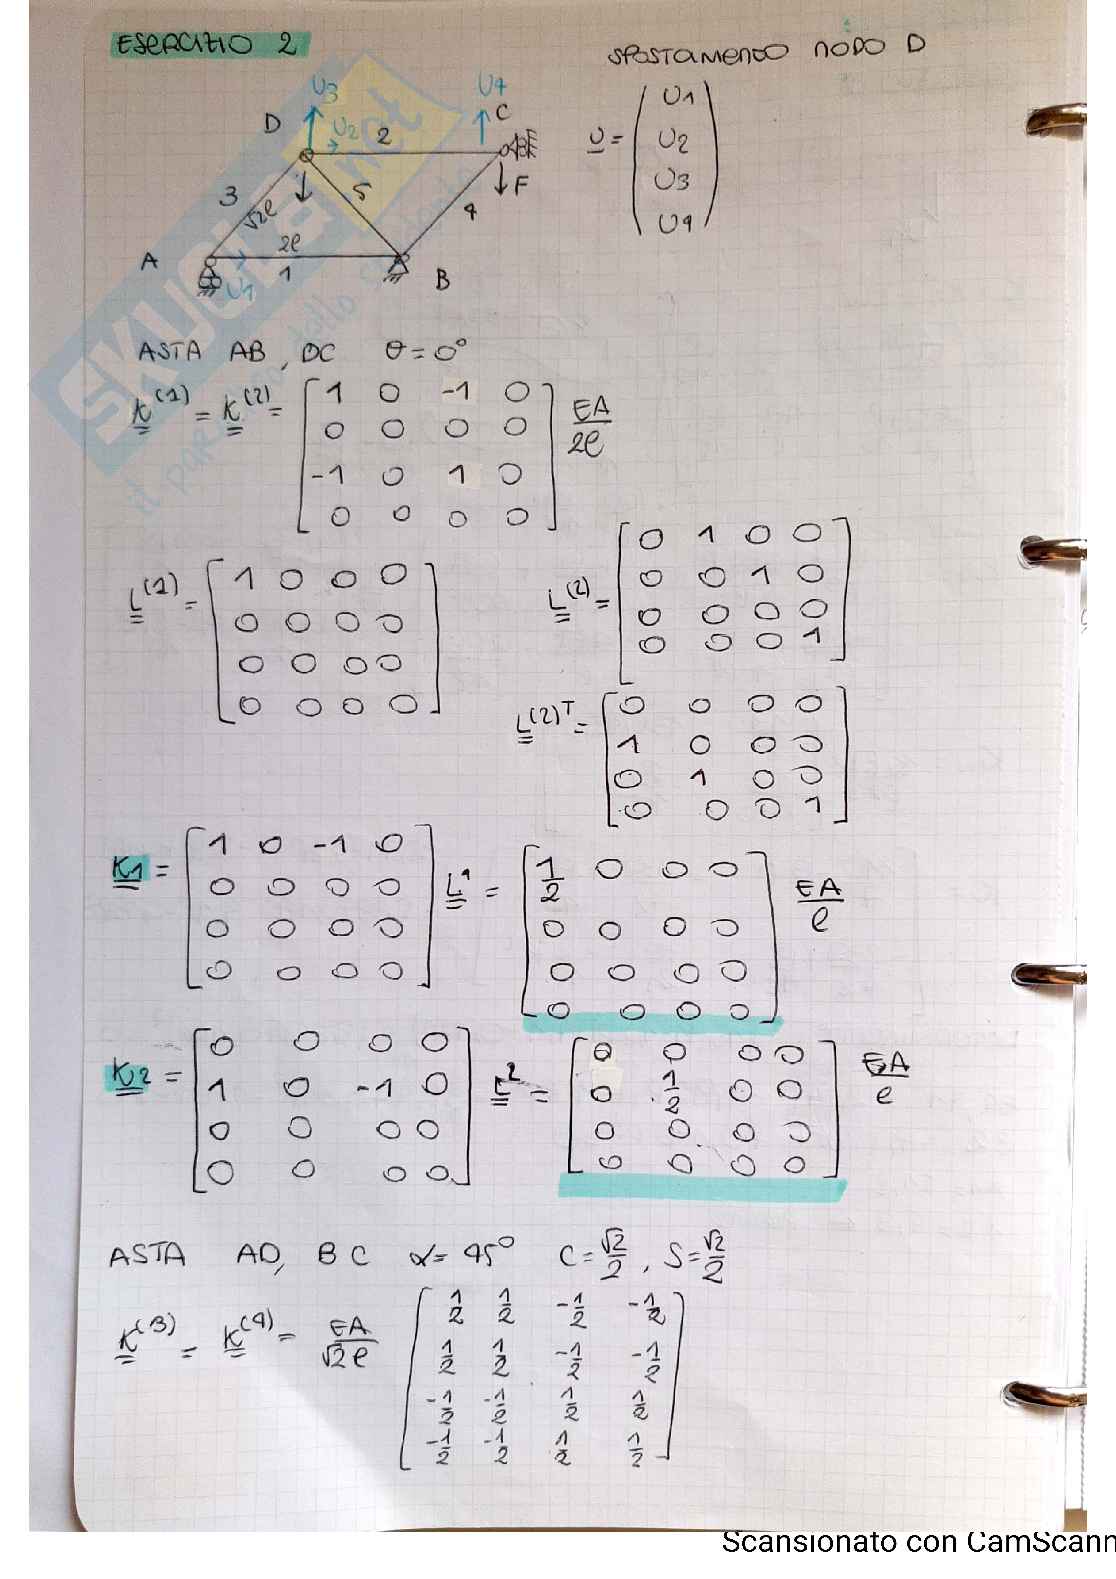 ESERCIZIO 2
SPOSTAMENTO NODO D
U3 U4
D U2 2 C
3 √2l 5 4 F
A 2l
U1 1 B
U = ( U1
U2
U3
U4 )
ASTA AB, DC θ = 0°
K(1) = K(2) = [ 1 0 -1 0
0 0 0 0
-1 0 1 0
0 0 0 0 ] EA/2l
L(1) = [ 1 0 0 0
0 0 0 0
0 0 0 0
0 0 0 0 ]
L(2) = [ 0 1 0 0
0 0 1 0
0 0 0 0
0 0 0 1 ]
L(2)T = [ 0 0 0 0
1 0 0 0
0 1 0 0
0 0 0 1 ]
K1 = [ 1 0 -1 0
0 0 0 0
0 0 0 0
0 0 0 0 ] L1 = [ 1/2 0 0 0
0 0 0 0
0 0 0 0
0 0 0 0 ] EA/l
K2 = [ 0 0 0 0
1 0 -1 0
0 0 0 0
0 0 0 0 ] L2 = [ 0 0 0 0
0 1/2 0 0
0 0 0 0
0 0 0 0 ] EA/l
ASTA AD, BC α = 45° C = √2/2, S = √2/2
K(3) = K(4) = EA/√2l [ 1/2 1/2 -1/2 -1/2
1/2 1/2 -1/2 -1/2
-1/2 -1/2 1/2 1/2
-1/2 -1/2 1/2 1/2 ]
SKUOLA.net
Scansionato con CamScann